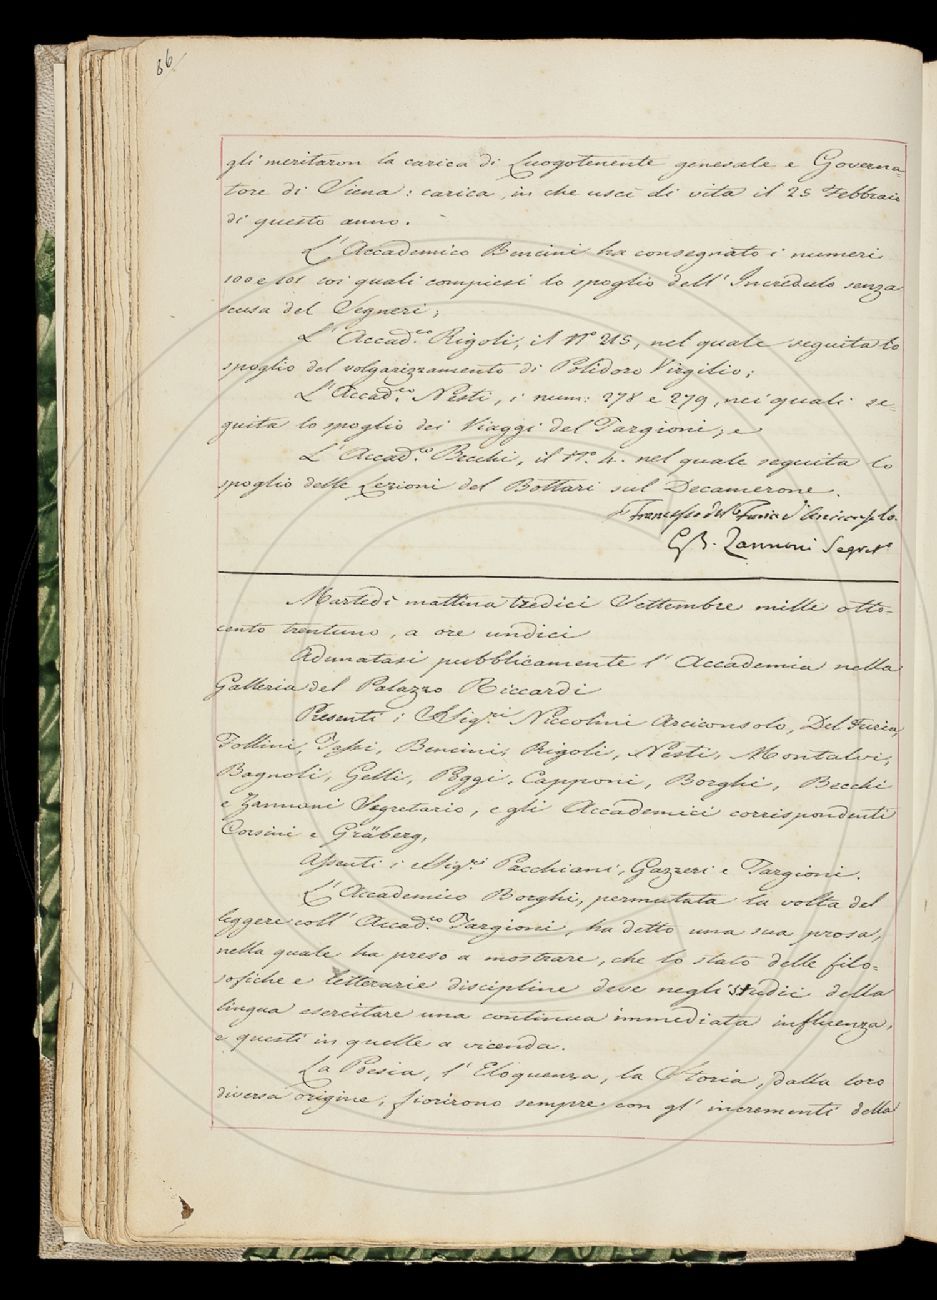 86
gli meritaron la carica di Luogotenente generale e Governa-
tore di Siena: carica, in che uscì di vita il 25 Febbraio
di questo anno.
L'Accademico Bencini ha consegnato i numeri
100 e 101 coi quali compiesi lo spoglio dell'Incredulo senza
scusa del Segneri;
L'Accad.co Rigoli, il N.o 215, nel quale seguita lo
spoglio del volgarizzamento di Polidoro Virgilio;
L'Accad.co Nesti, i num: 278 e 279, nei quali se-
guita lo spoglio dei Viaggi del Targioni; e
L'Accad.co Becchi, il N.o 4. nel quale seguita lo
spoglio delle Lezioni del Bottari sul Decamerone.
Francesco del Furia
G.B. Zannoni Segret.o
Martedì mattina tredici Settembre mille otto-
cento trentuno, a ore undici
Adunatasi pubblicamente l'Accademia nella
Galleria del Palazzo Riccardi
Presenti i SSig.ri Niccolini Arciconsolo, Del Furia,
Follini, Tassi, Bencini, Rigoli, Nesti, Montalvi,
Bagnoli, Gelli, Poggi, Capponi, Borghi, Becchi
e Zannoni Segretario, e gli Accademici corrispondenti
Corsini e Gräberg,
Assenti i SSig.ri Pacchiani, Gazzeri e Targioni.
L'Accademico Borghi, permutata la volta del
leggere coll'Accad.co Targioni, ha detto una sua prosa,
nella quale ha preso a mostrare, che lo stato delle filo-
sofiche e letterarie discipline deve negli studii della
lingua esercitare una continua immediata influenza,
e questi in quelle a vicenda.
La Poesia, l'Eloquenza, la Storia, dalla loro
diversa origine, fiorirono sempre con gl'incrementi della